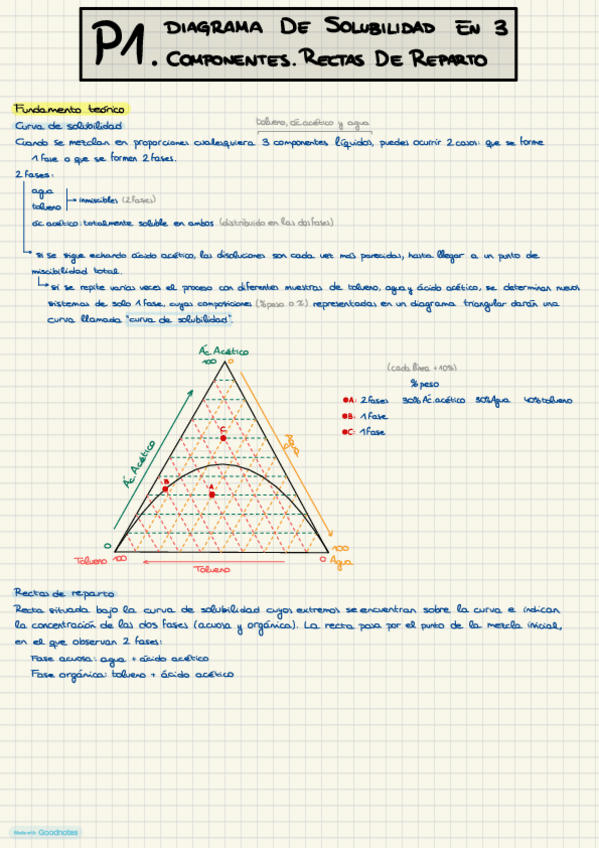 P1. DIAGRAMA DE SOLUBILIDAD EN 3
COMPONENTES. RECTAS DE REPARTO
Fundamento teórico
Curva de solubilidad
tolueno, ác. acético y agua
Cuando se mezclan en proporciones cualesquiera 3 componentes líquidos, puedes ocurrir 2 casos: que se forme
1 fase o que se formen 2 fases.
2 Fases:
agua
tolueno
inmiscibles (2 fases)
ác. acético: totalmente soluble en ambos (distribuido en las dos fases)
si se sigue echando ácido acético, las disoluciones son cada vez más parecidas, hasta llegar a un punto de
miscibilidad total.
si se repite varias veces el proceso con diferentes muestras de tolueno, agua y ácido acético, se determinan nuevos
sistemas de solo 1 fase, cuyas composiciones (% peso o X) representadas en un diagrama triangular darán una
curva llamada "curva de solubilidad".
Ác. Acético
100 0
(cada línea +10%)
% peso
A: 2 fases 30% Ác. acético 30% Agua 40% tolueno
B: 1 Fase
C: 1 Fase
Ác. Acético
Agua
C
B
A
0
100
Tolueno 100
0 Agua
Tolueno
Rectas de reparto
Recta situada bajo la curva de solubilidad cuyos extremos se encuentran sobre la curva e indican
la concentración de las dos fases (acuosa y orgánica). La recta pasa por el punto de la mezcla inicial,
en el que observan 2 fases:
Fase acuosa: agua + ácido acético
Fase orgánica: tolueno + ácido acético
Made with Goodnotes